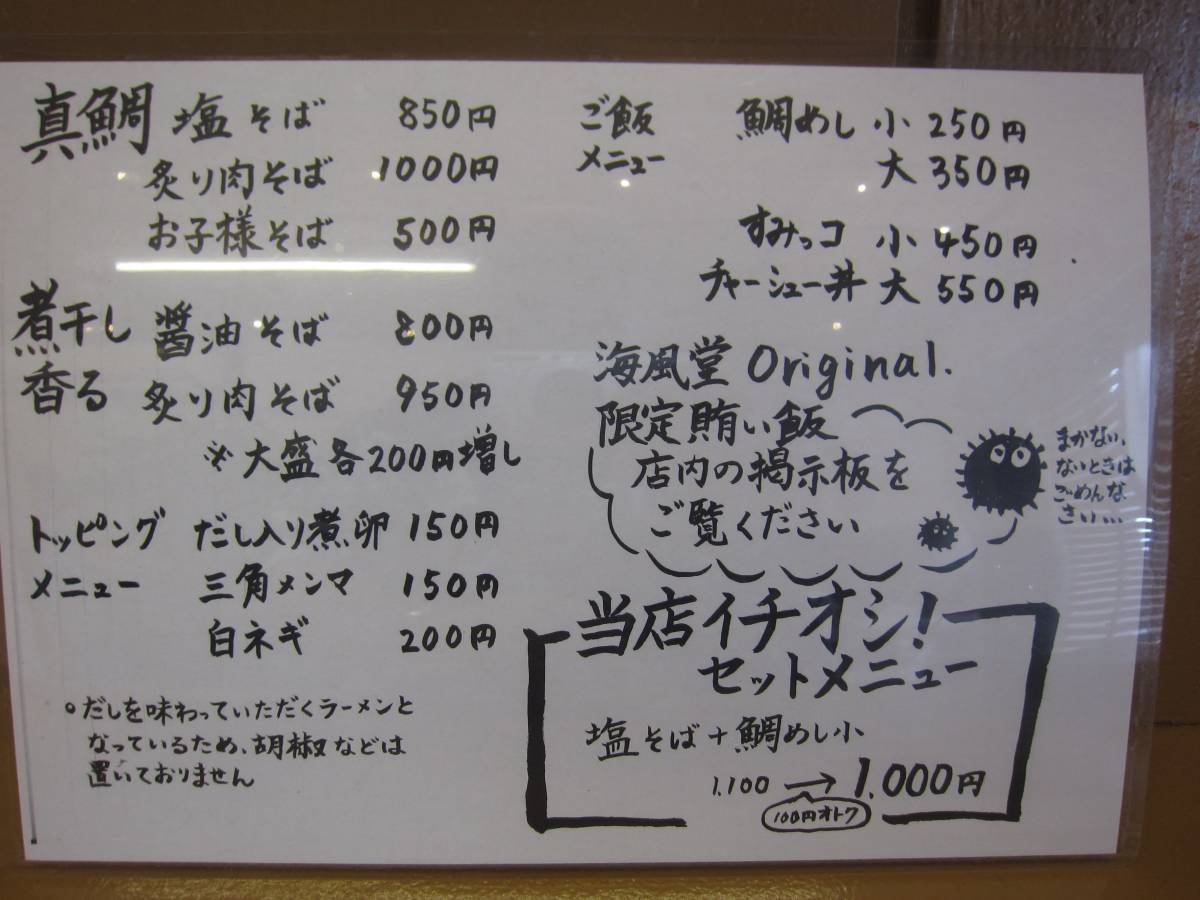 真鯛 塩そば 850円
炙り肉そば 1000円
お子様そば 500円
煮干し 醤油そば 800円
香る 炙り肉そば 950円
※大盛各200円増し
トッピング だし入り煮卵 150円
メニュー 三角メンマ 150円
白ネギ 200円
○だしを味わっていただくラーメンと
なっているため、胡椒などは
置いておりません
ご飯 鯛めし 小 250円
メニュー 大 350円
すみっコ 小 450円
チャーシュー丼 大 550円
海風堂 Original.
限定賄い飯
店内の掲示板を
ご覧ください
まかない、
ないときは
ごめんな
さい…
当店イチオシ!
セットメニュー
塩そば+鯛めし小
1,100 → 1,000円
100円オトク